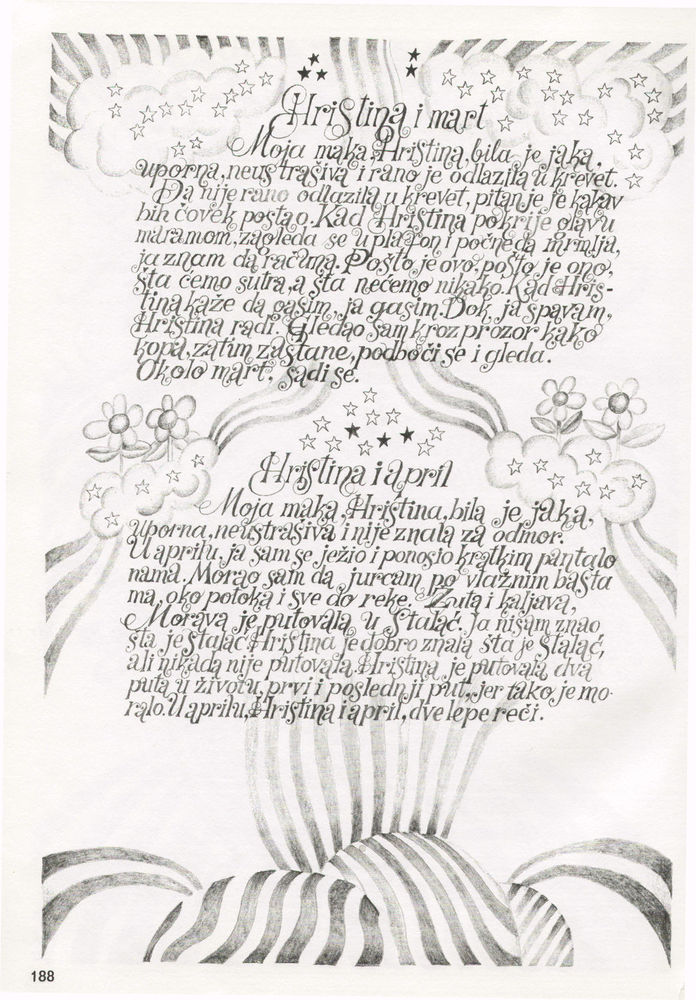 Hristina i mart
Moja majka, Hristina, bila je jaka,
uporna, neustrašiva i rano je odlazila u krevet.
Da nije rano odlazila u krevet, pitanje je kakav
bih čovek postao. Kad Hristina pokrije glavu
maramom, zagleda se u plafon i počne da mrmlja,
ja znam da računa. Pošto je ovo, pošto je ono,
šta ćemo sutra, a šta nećemo nikako. Kad Hris-
tina kaže da gasim, ja gasim. Dok ja spavam,
Hristina radi. Gledao sam kroz prozor kako
kopa, zatim zastane, podboči se i gleda.
Okolo mart, sadi se.
Hristina i april
Moja majka, Hristina, bila je jaka,
uporna, neustrašiva i nije znala za odmor.
U aprilu, ja sam se ježio i ponosio kratkim pantalo
nama. Morao sam da jurcam po vlažnim bašta
ma, oko potoka i sve do reke. Žuta i kaljava,
Morava je putovala u Stalać. Ja nisam znao
šta je Stalać, Hristina je dobro znala šta je Stalać,
ali nikada nije putovala. Hristina je putovala dva
puta u životu, prvi i poslednji put, jer tako je mo-
ralo. U aprilu, Hristina i april, dve lepe reči.
188